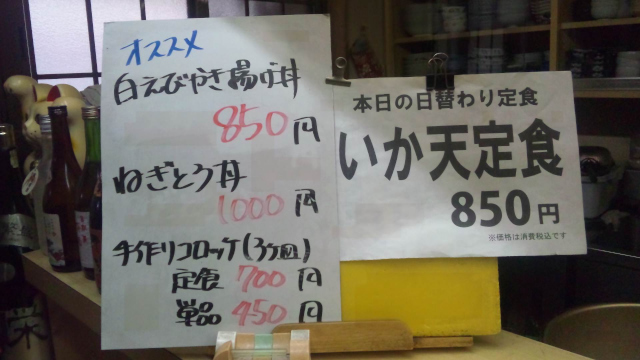 オススメ
白えびかき揚げ丼
850円
ねぎとろ丼
1000円
手作りコロッケ(3ヶ皿)
定食 700円
単品 450円
本日の日替わり定食
いか天定食
850円
※価格は消費税込です